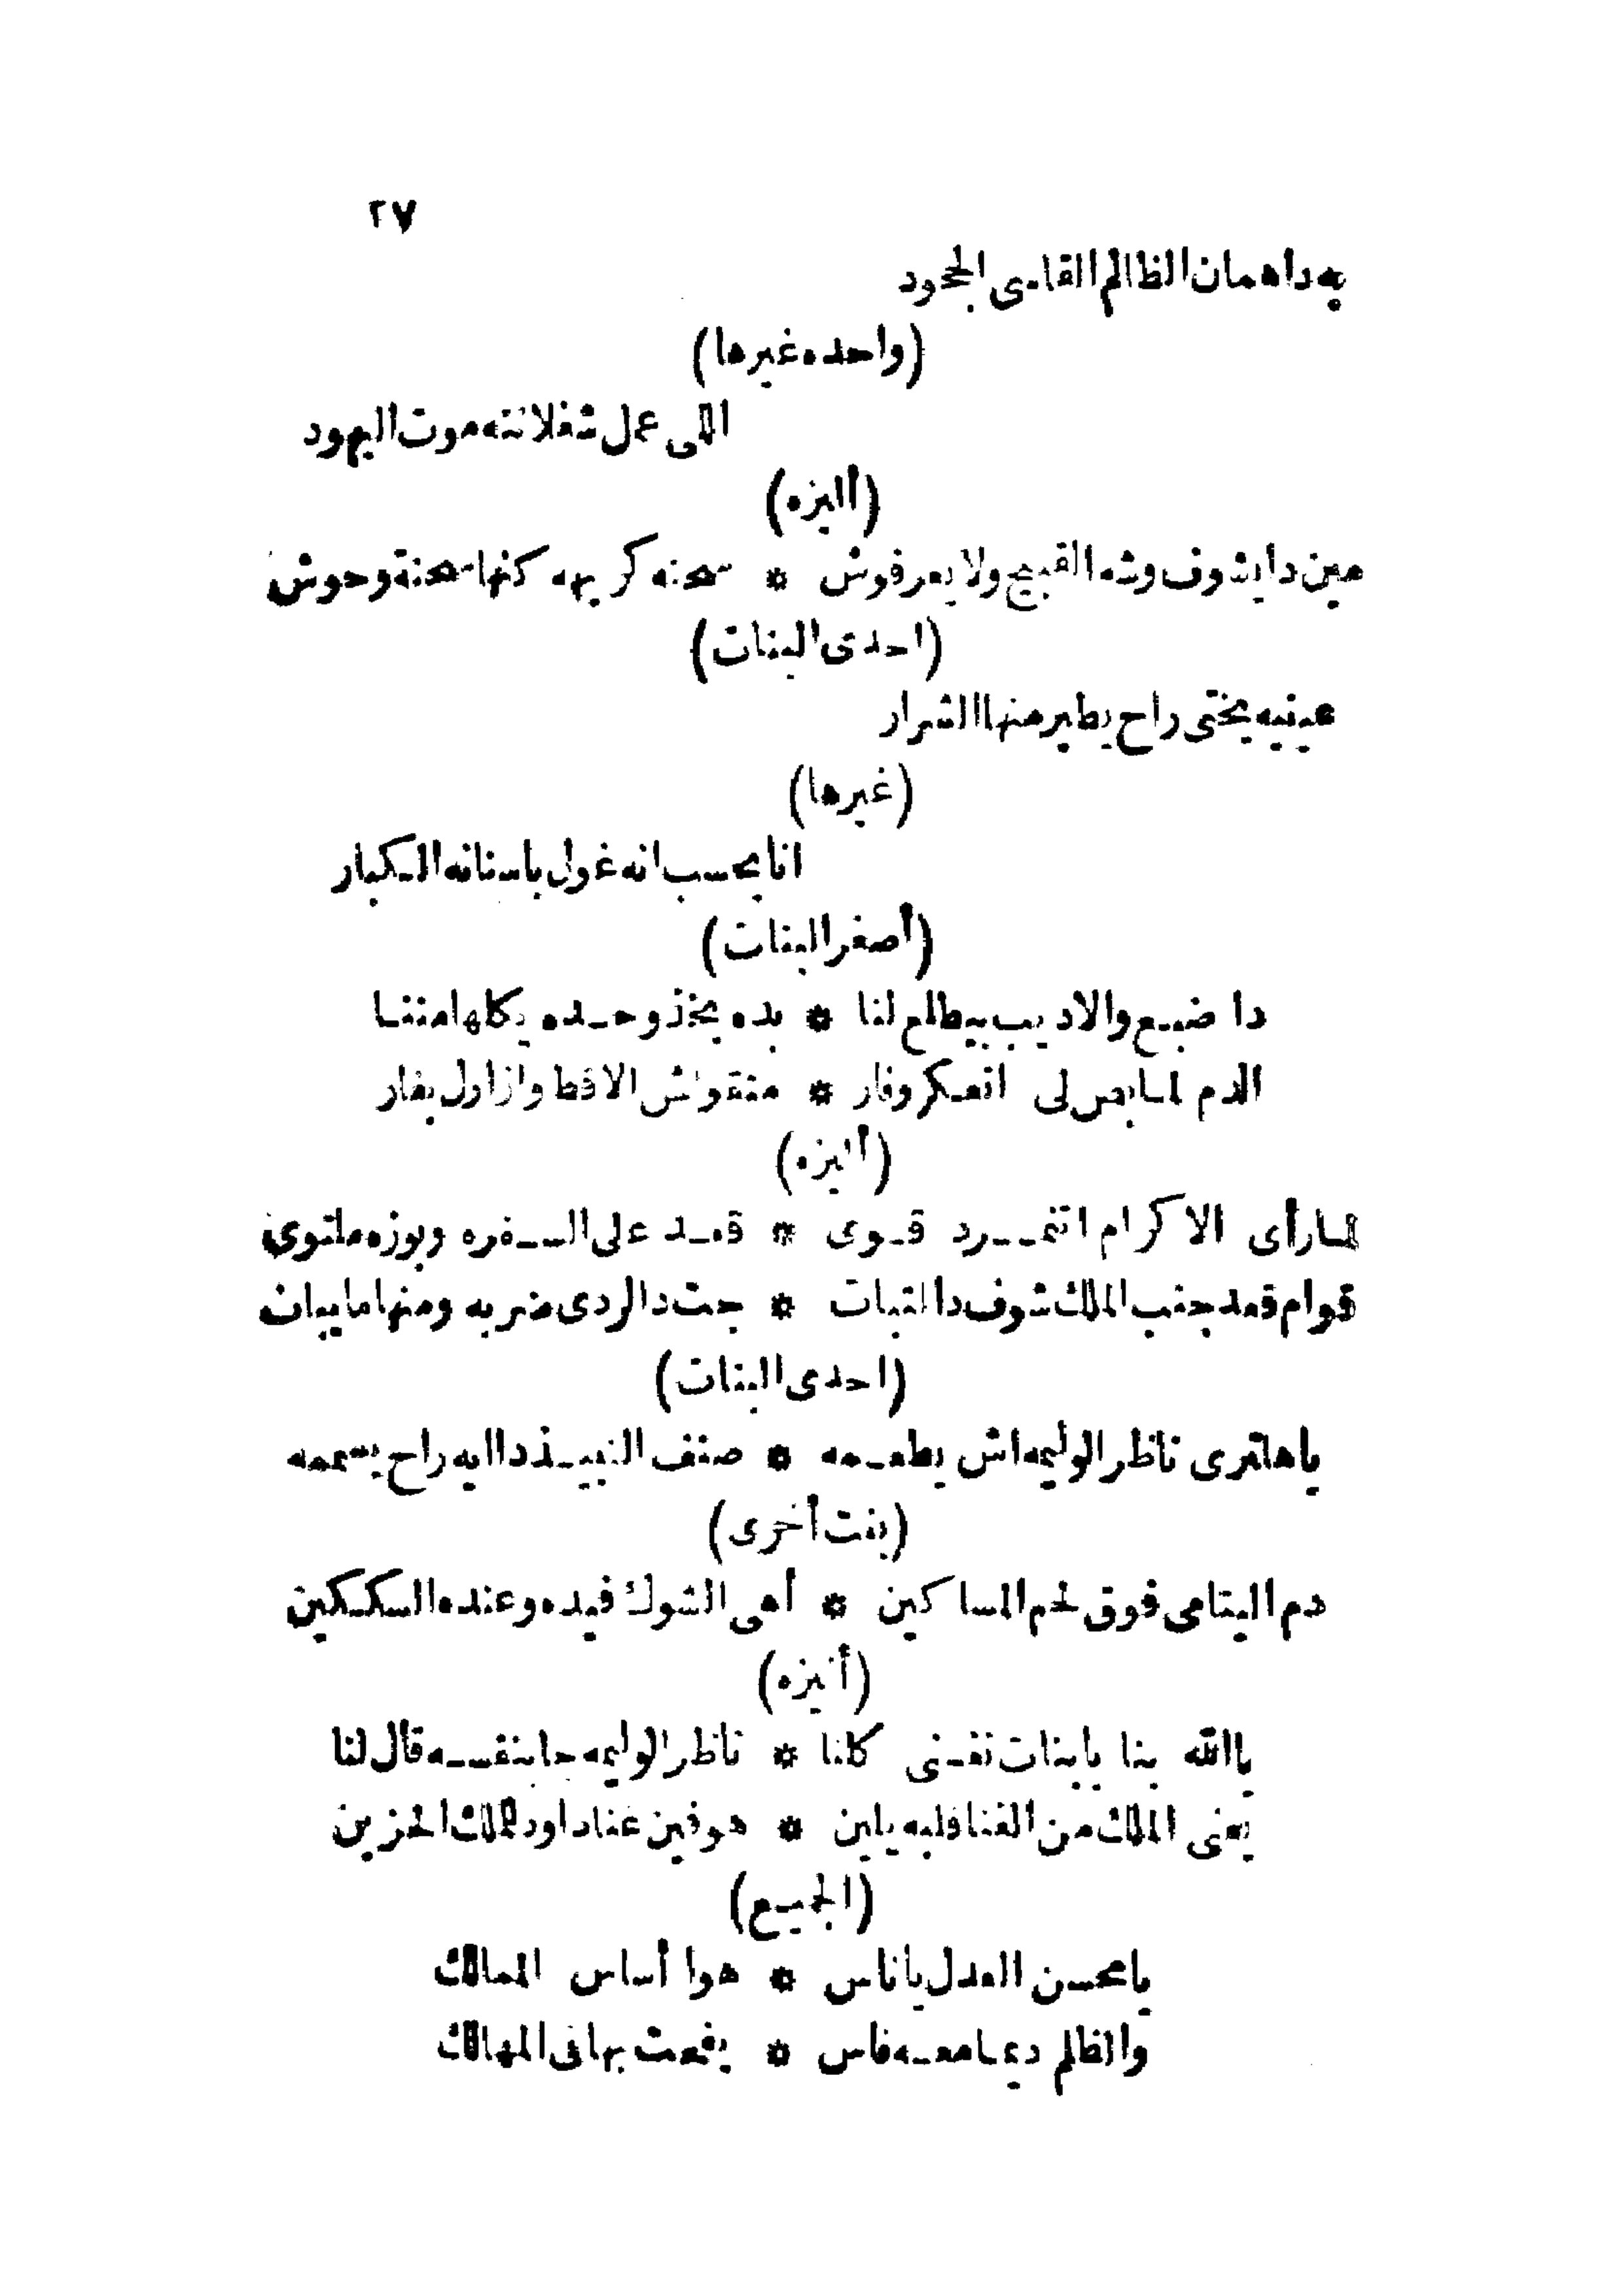 ٢٧
يه داهمان الظالم القاسى الجحود
(واحده غيرها)
اللى عمل شغلانته موت اليهود
(أليزه)
مين دا يشوف وشه القبيح ولا يعرفوش * سحنه كريهه كنها سحنة وحوش
(احدى البنات)
عينيه يختى راح يطير منها الشرار
(غيرها)
انا بحسب انه غول باسنانه الكبار
(أصغر البنات)
دا ضبع والاديب بيطلع لنا * بده يخذ وحده يكلها مننا
الدم لما بص لى انعكر وفار * منقولش الا قط وانا اول بفار
(أليزه)
لما رأى الاكرام اتنمرد قوى * قعد على السفره وبوزه ملتوى
قوام قعد جنب الملك شوف دا التبات * جت دالردى ضربه ومنها ما يبان
(احدى البنات)
ياهلترى ناظر الوليمه اش يطعمه * صنف النبيذ دا ايه راح يسممه
(بنت أخرى)
دم اليتامى فوق لحم المساكين * أهى الشوك فيده وعنده السكاكين
(أليزه)
ياالله بنا يابنات نغنى كلنا * ناظر الوليمه جا بنفسه قال لنا
يعنى الملك من الغنا قلبه يلين * هو فين غنا داود للملك الحزين
(الجميع)
يامحسن العدل ياناس * هوا أساس الممالك
والظالم ديما معه فاس * يفحت بها فى المهالك